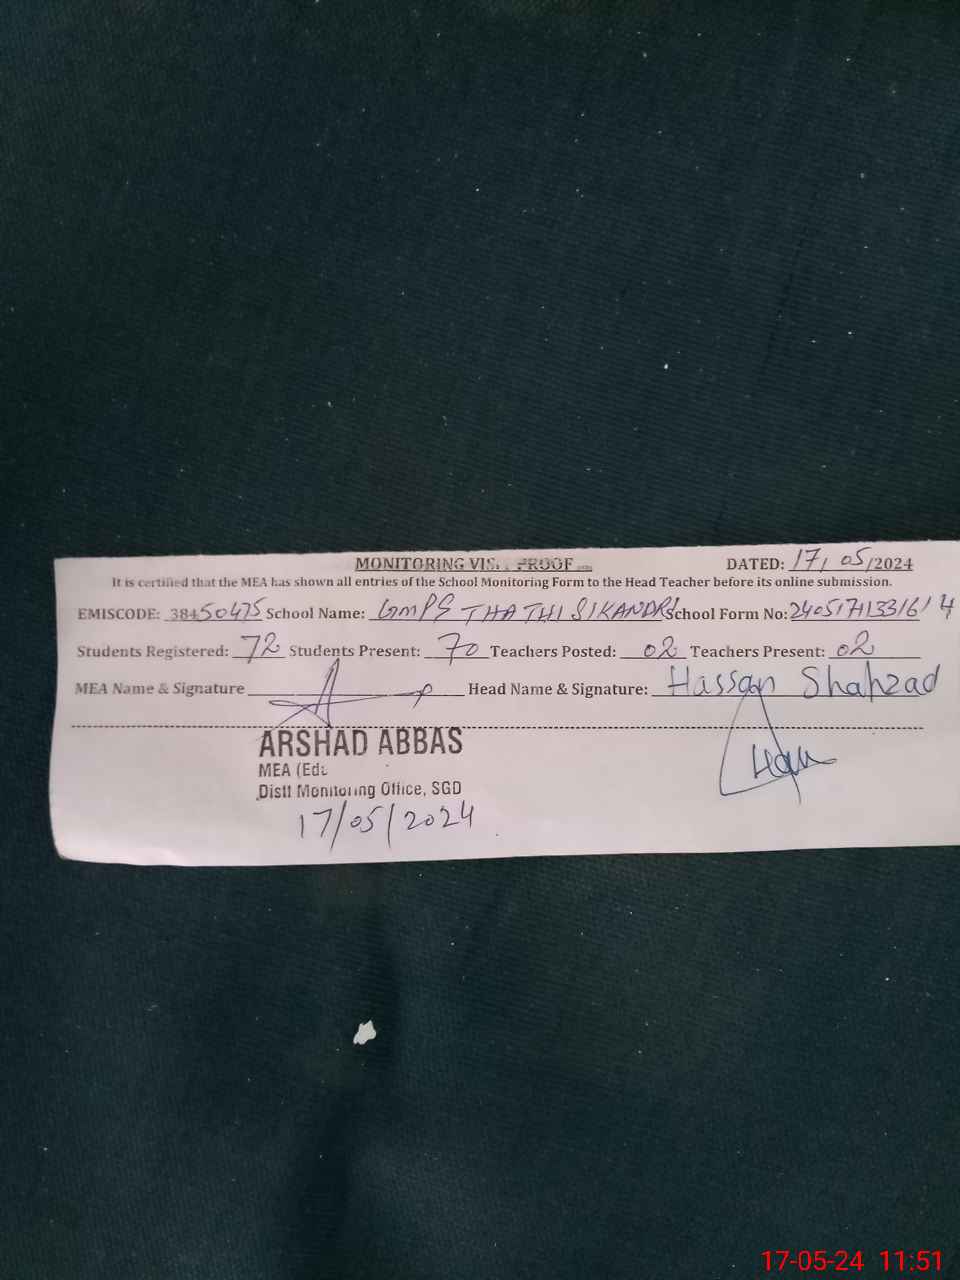 MONITORING VIS PROOF DATED: 17/05/2024
It is certified that the MEA has shown all entries of the School Monitoring Form to the Head Teacher before its online submission.
EMISCODE: 38450475 School Name: GMPS THATHI SIKANDRI School Form No: 2405171331614
Students Registered: 72 Students Present: 70 Teachers Posted: 02 Teachers Present: 02
MEA Name & Signature Head Name & Signature: Hassan Shahzad
ARSHAD ABBAS
MEA (Edu
Distt Monitoring Office, SGD
17/05/2024
17-05-24 11:51